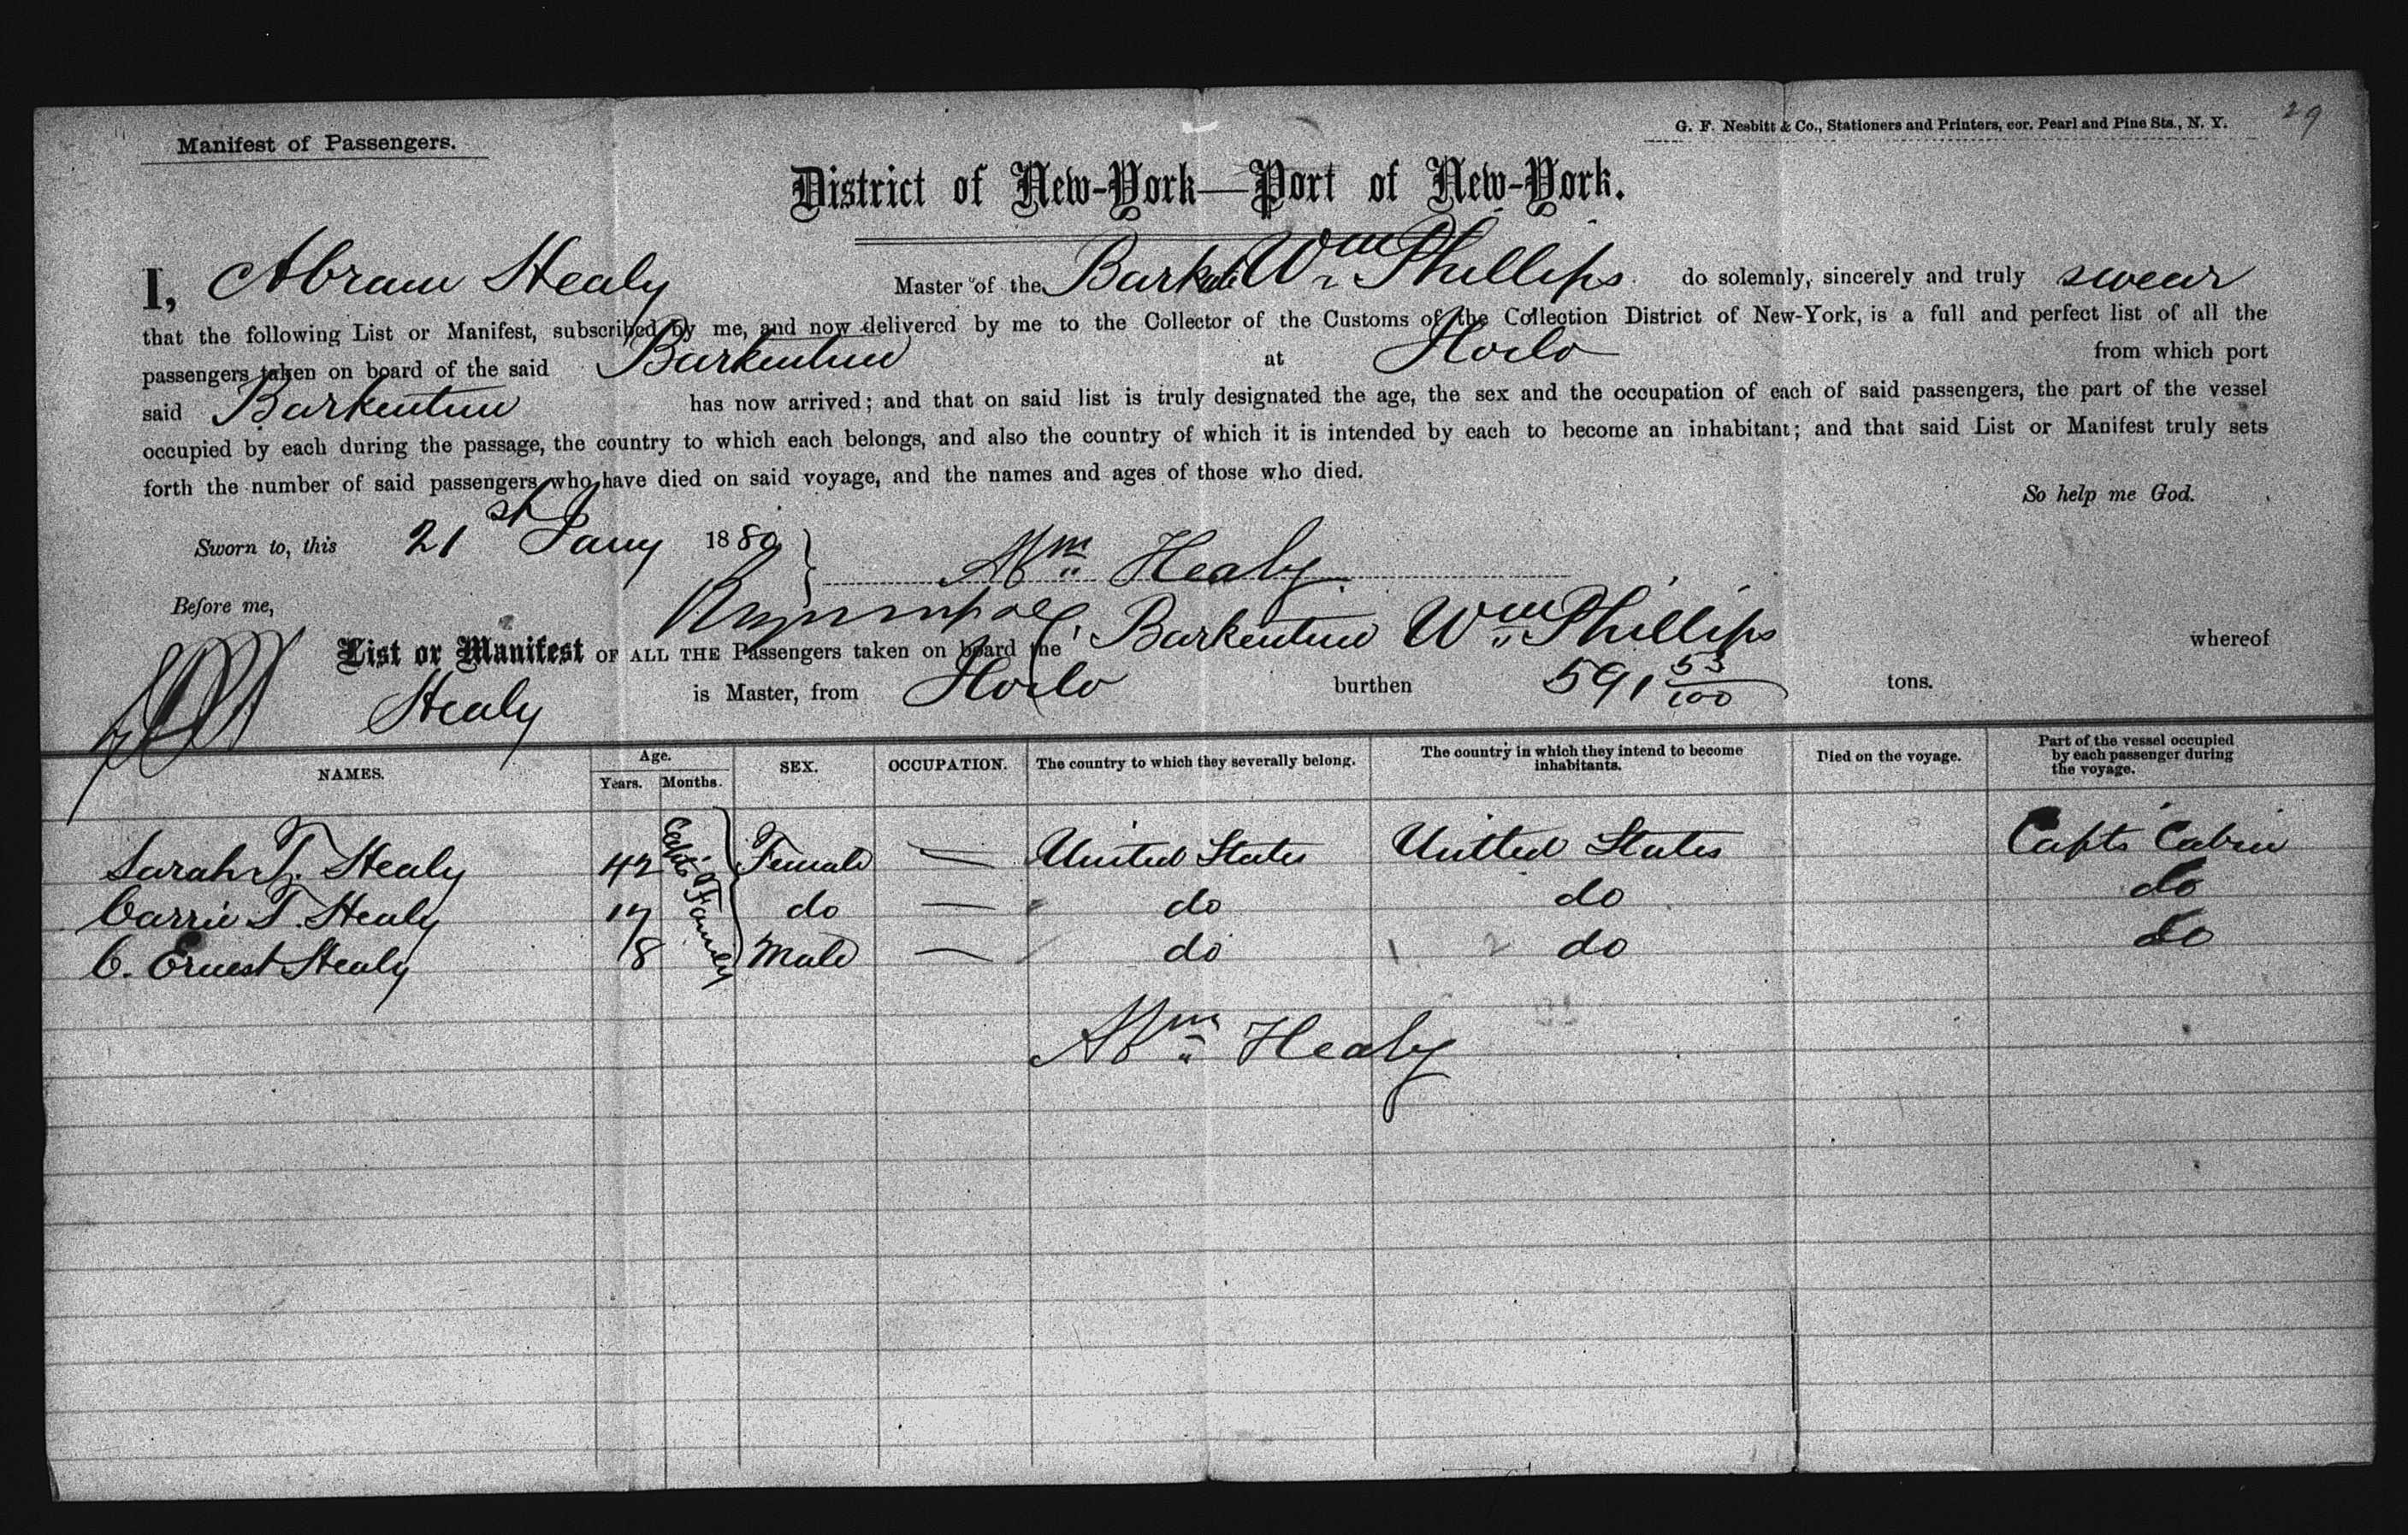 29
Manifest of Passengers.
G. F. Nesbitt & Co., Stationers and Printers, cor. Pearl and Pine Sts., N. Y.
District of New-York—Port of New-York.
I, Abram Healy Master of the Barkntn Wm Phillips do solemnly, sincerely and truly swear
that the following List or Manifest, subscribed by me, and now delivered by me to the Collector of the Customs of the Collection District of New-York, is a full and perfect list of all the
passengers taken on board of the said Barkentine at Iloilo from which port
said Barkentine has now arrived; and that on said list is truly designated the age, the sex and the occupation of each of said passengers, the part of the vessel
occupied by each during the passage, the country to which each belongs, and also the country of which it is intended by each to become an inhabitant; and that said List or Manifest truly sets
forth the number of said passengers who have died on said voyage, and the names and ages of those who died.
So help me God.
Sworn to, this 21st Jany 1880 } Abm Healy
Before me,
List or Manifest OF ALL THE Passengers taken on board the Barkentine Wm Phillips whereof
Healy is Master, from Iloilo burthen 591 53/100 tons.
NAMES. Age. Years. Months. SEX. OCCUPATION. The country to which they severally belong. The country in which they intend to become inhabitants. Died on the voyage. Part of the vessel occupied by each passenger during the voyage.
Sarah T. Healy 42 Capt's Family Female — United States United States Capts Cabin
Carrie T. Healy 17 do — do do do
C. Ernest Healy 8 Male — do do do
Abm Healy